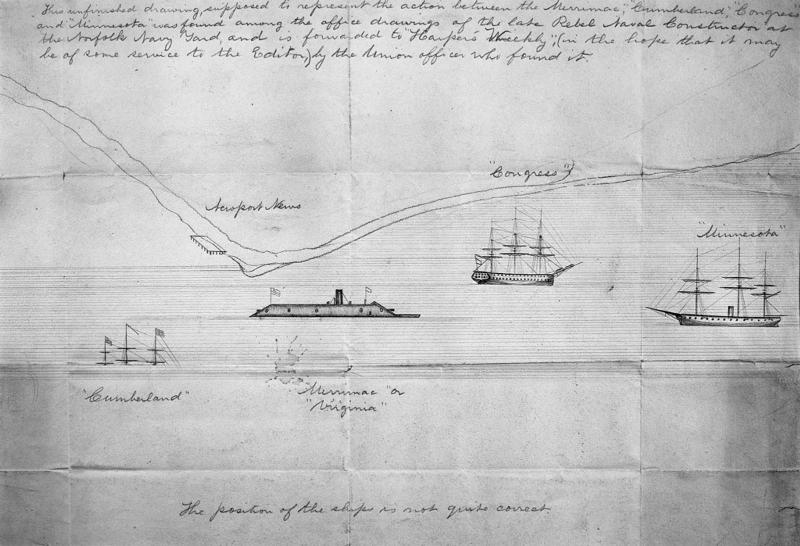 This unfinished drawing, supposed to represent the action between the Merrimac, "Cumberland," "Congress"
and "Minnesota" was found among the office drawings of the late Rebel Naval Constructor at
the Norfolk Navy Yard, and is forwarded to "Harper's Weekly", (in the hope that it may
be of some service to the Editor,) by the Union officer who found it.
"Congress"
Newport News
"Minnesota"
"Cumberland"
Merrimac" or
"Virginia"
The position of the ships is not quite correct